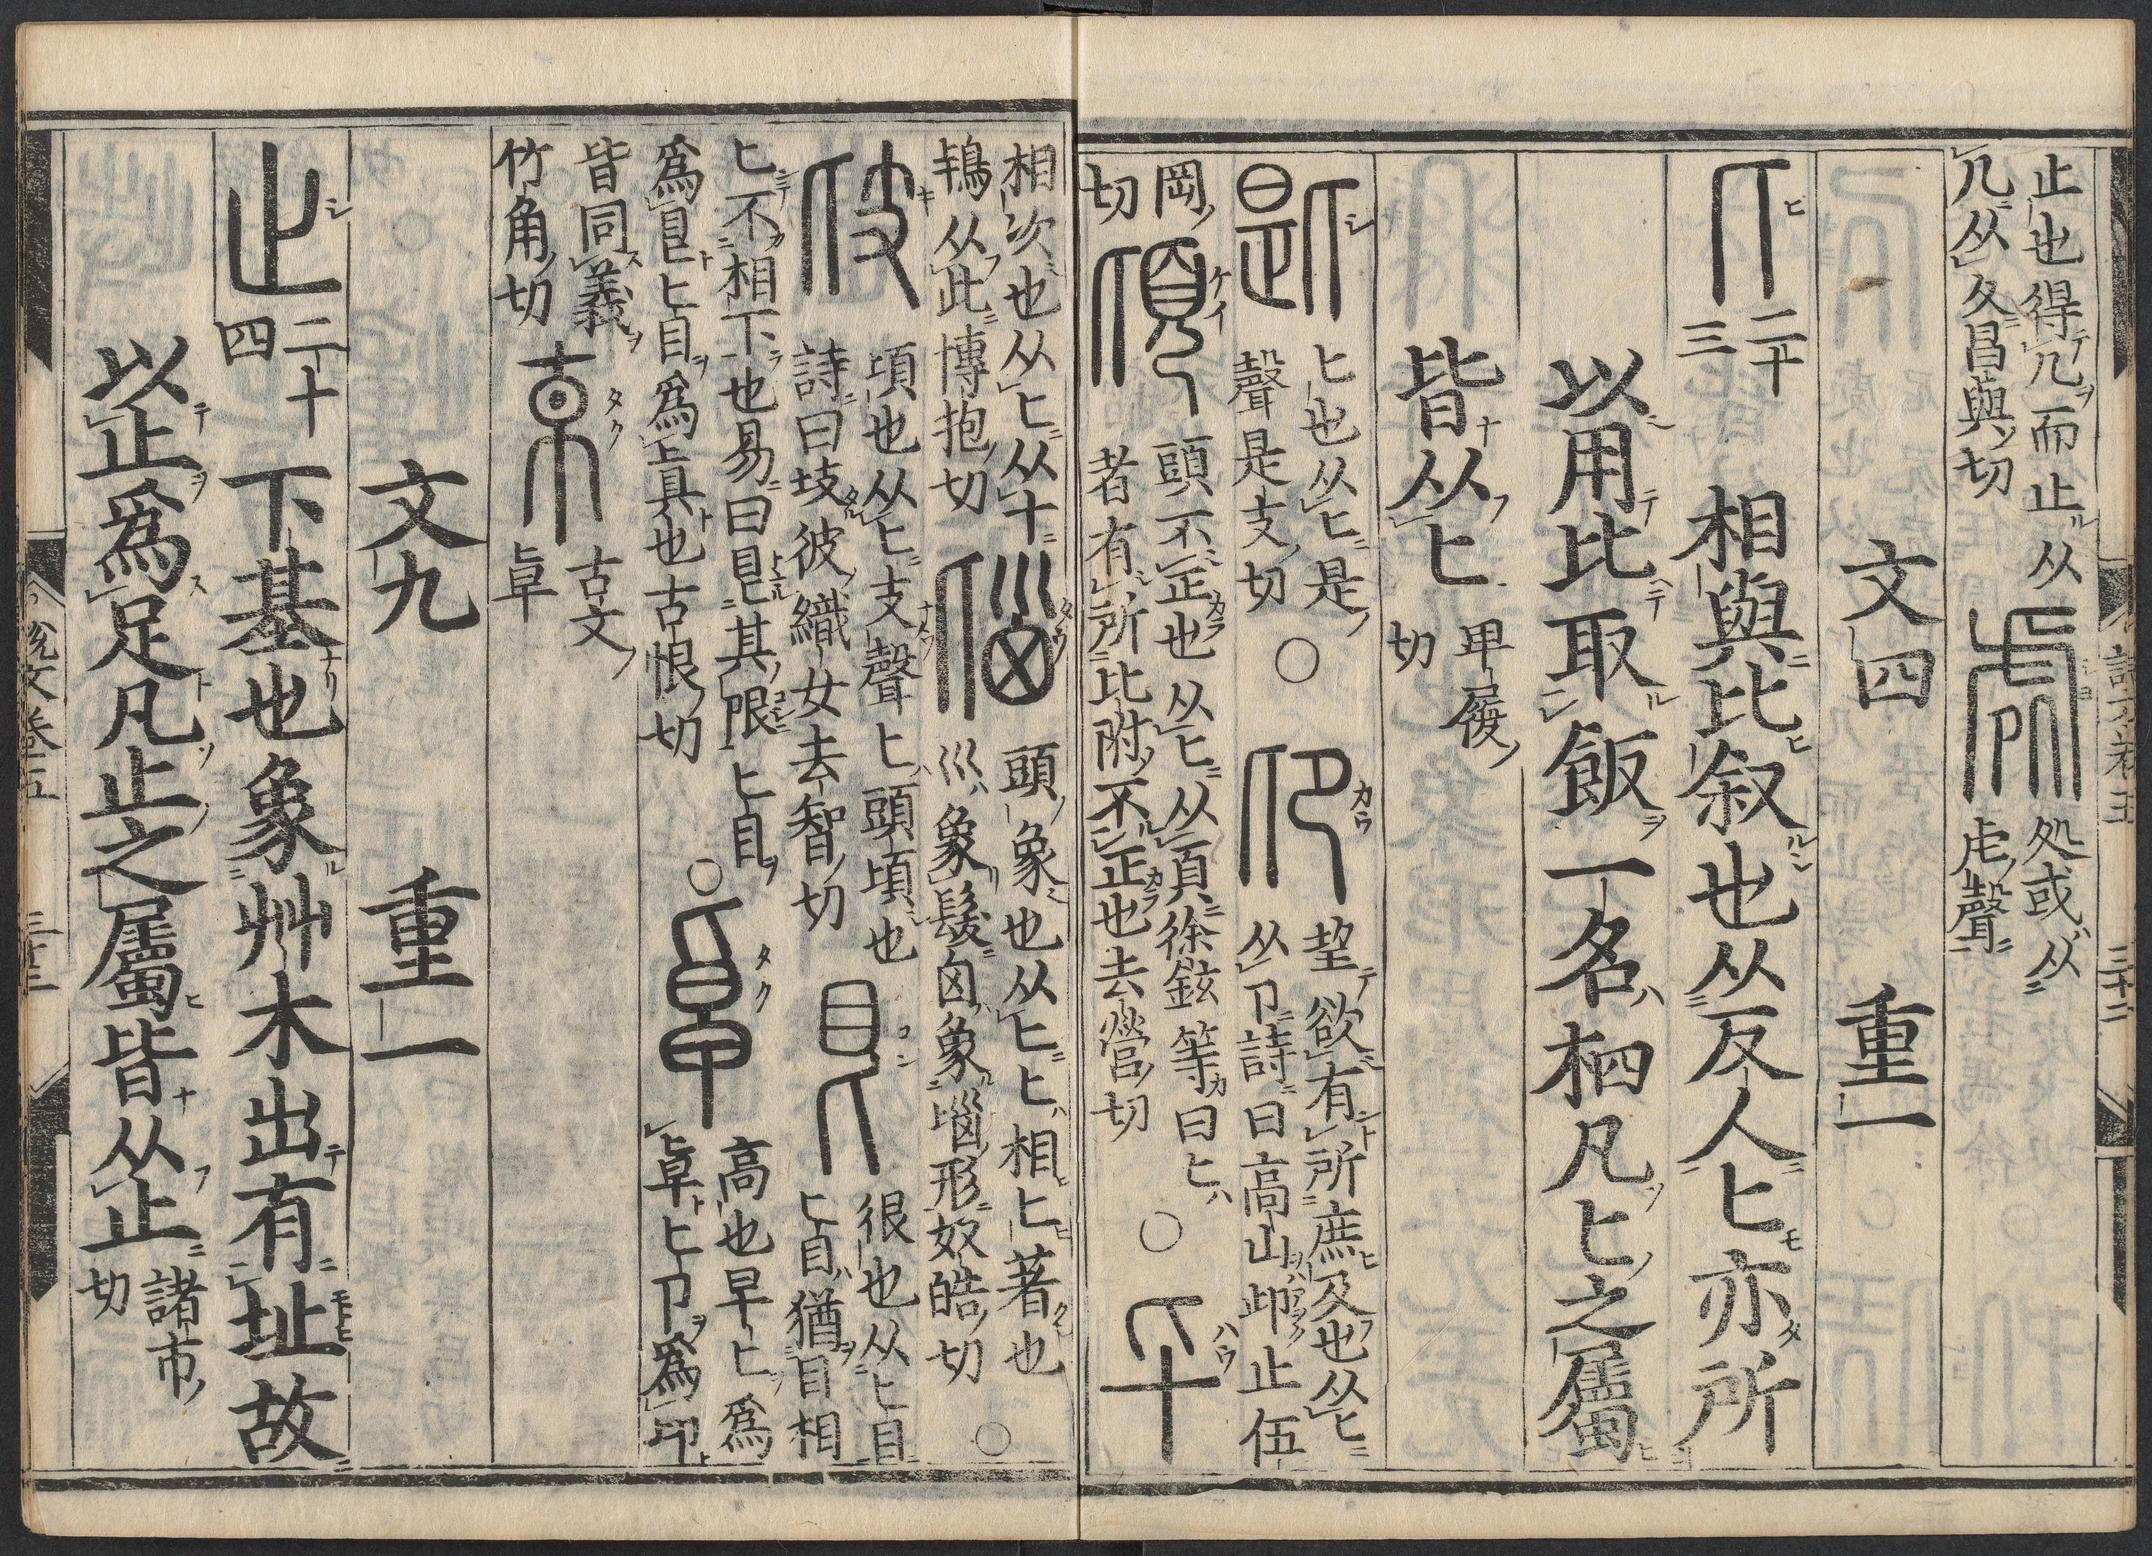 止也得几而止从
几从夂昌與切
処或从
虍聲
文四　重一
匕
二十
三
相與比叙也从反人匕亦所
以用比取飯一名柶凡匕之屬
皆从匕
卑履
切
匙
匕也从匕是
聲是支切
○
卬
望欲有所庶及也从匕
从卪詩曰高山卬止伍
岡
切
頃
頭不正也从匕从頁徐鉉等曰匕
者有所比附不正也去營切
○
㐂
相次也从匕从十
鴇从此博抱切
匘
頭𦠊也从匕匕相匕著也
巛象髮囟象𡿺形奴皓切
○
𠨘
頃也从匕支聲匕頭頃也
詩曰𡉏彼織女去智切
𥃩
很也从匕目
匕目猶目相
匕不相下也易曰𥃩其限匕目
爲𥃩𠤎目爲眞也古恨切
○
卓
高也早匕爲
𠦝匕卪爲卬
皆同義
竹角切
古文
𠦝
文九　重一
止
二十
四
下基也象艸木出有址故
以止爲足凡止之屬皆从止
諸市
切
說文卷五　三十二
說文卷五　三十三